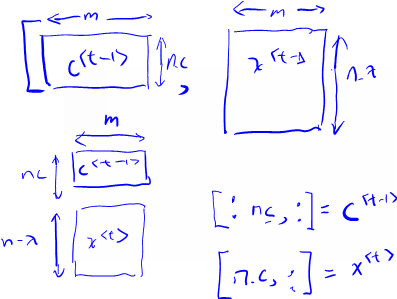 m
c<t-1>
nc
,
m
x<t-1
n_x
m
c<t-1>
nc
n-x
x<t>
[: nc, :] = c<t-1>
[n_c, :] = x<t>